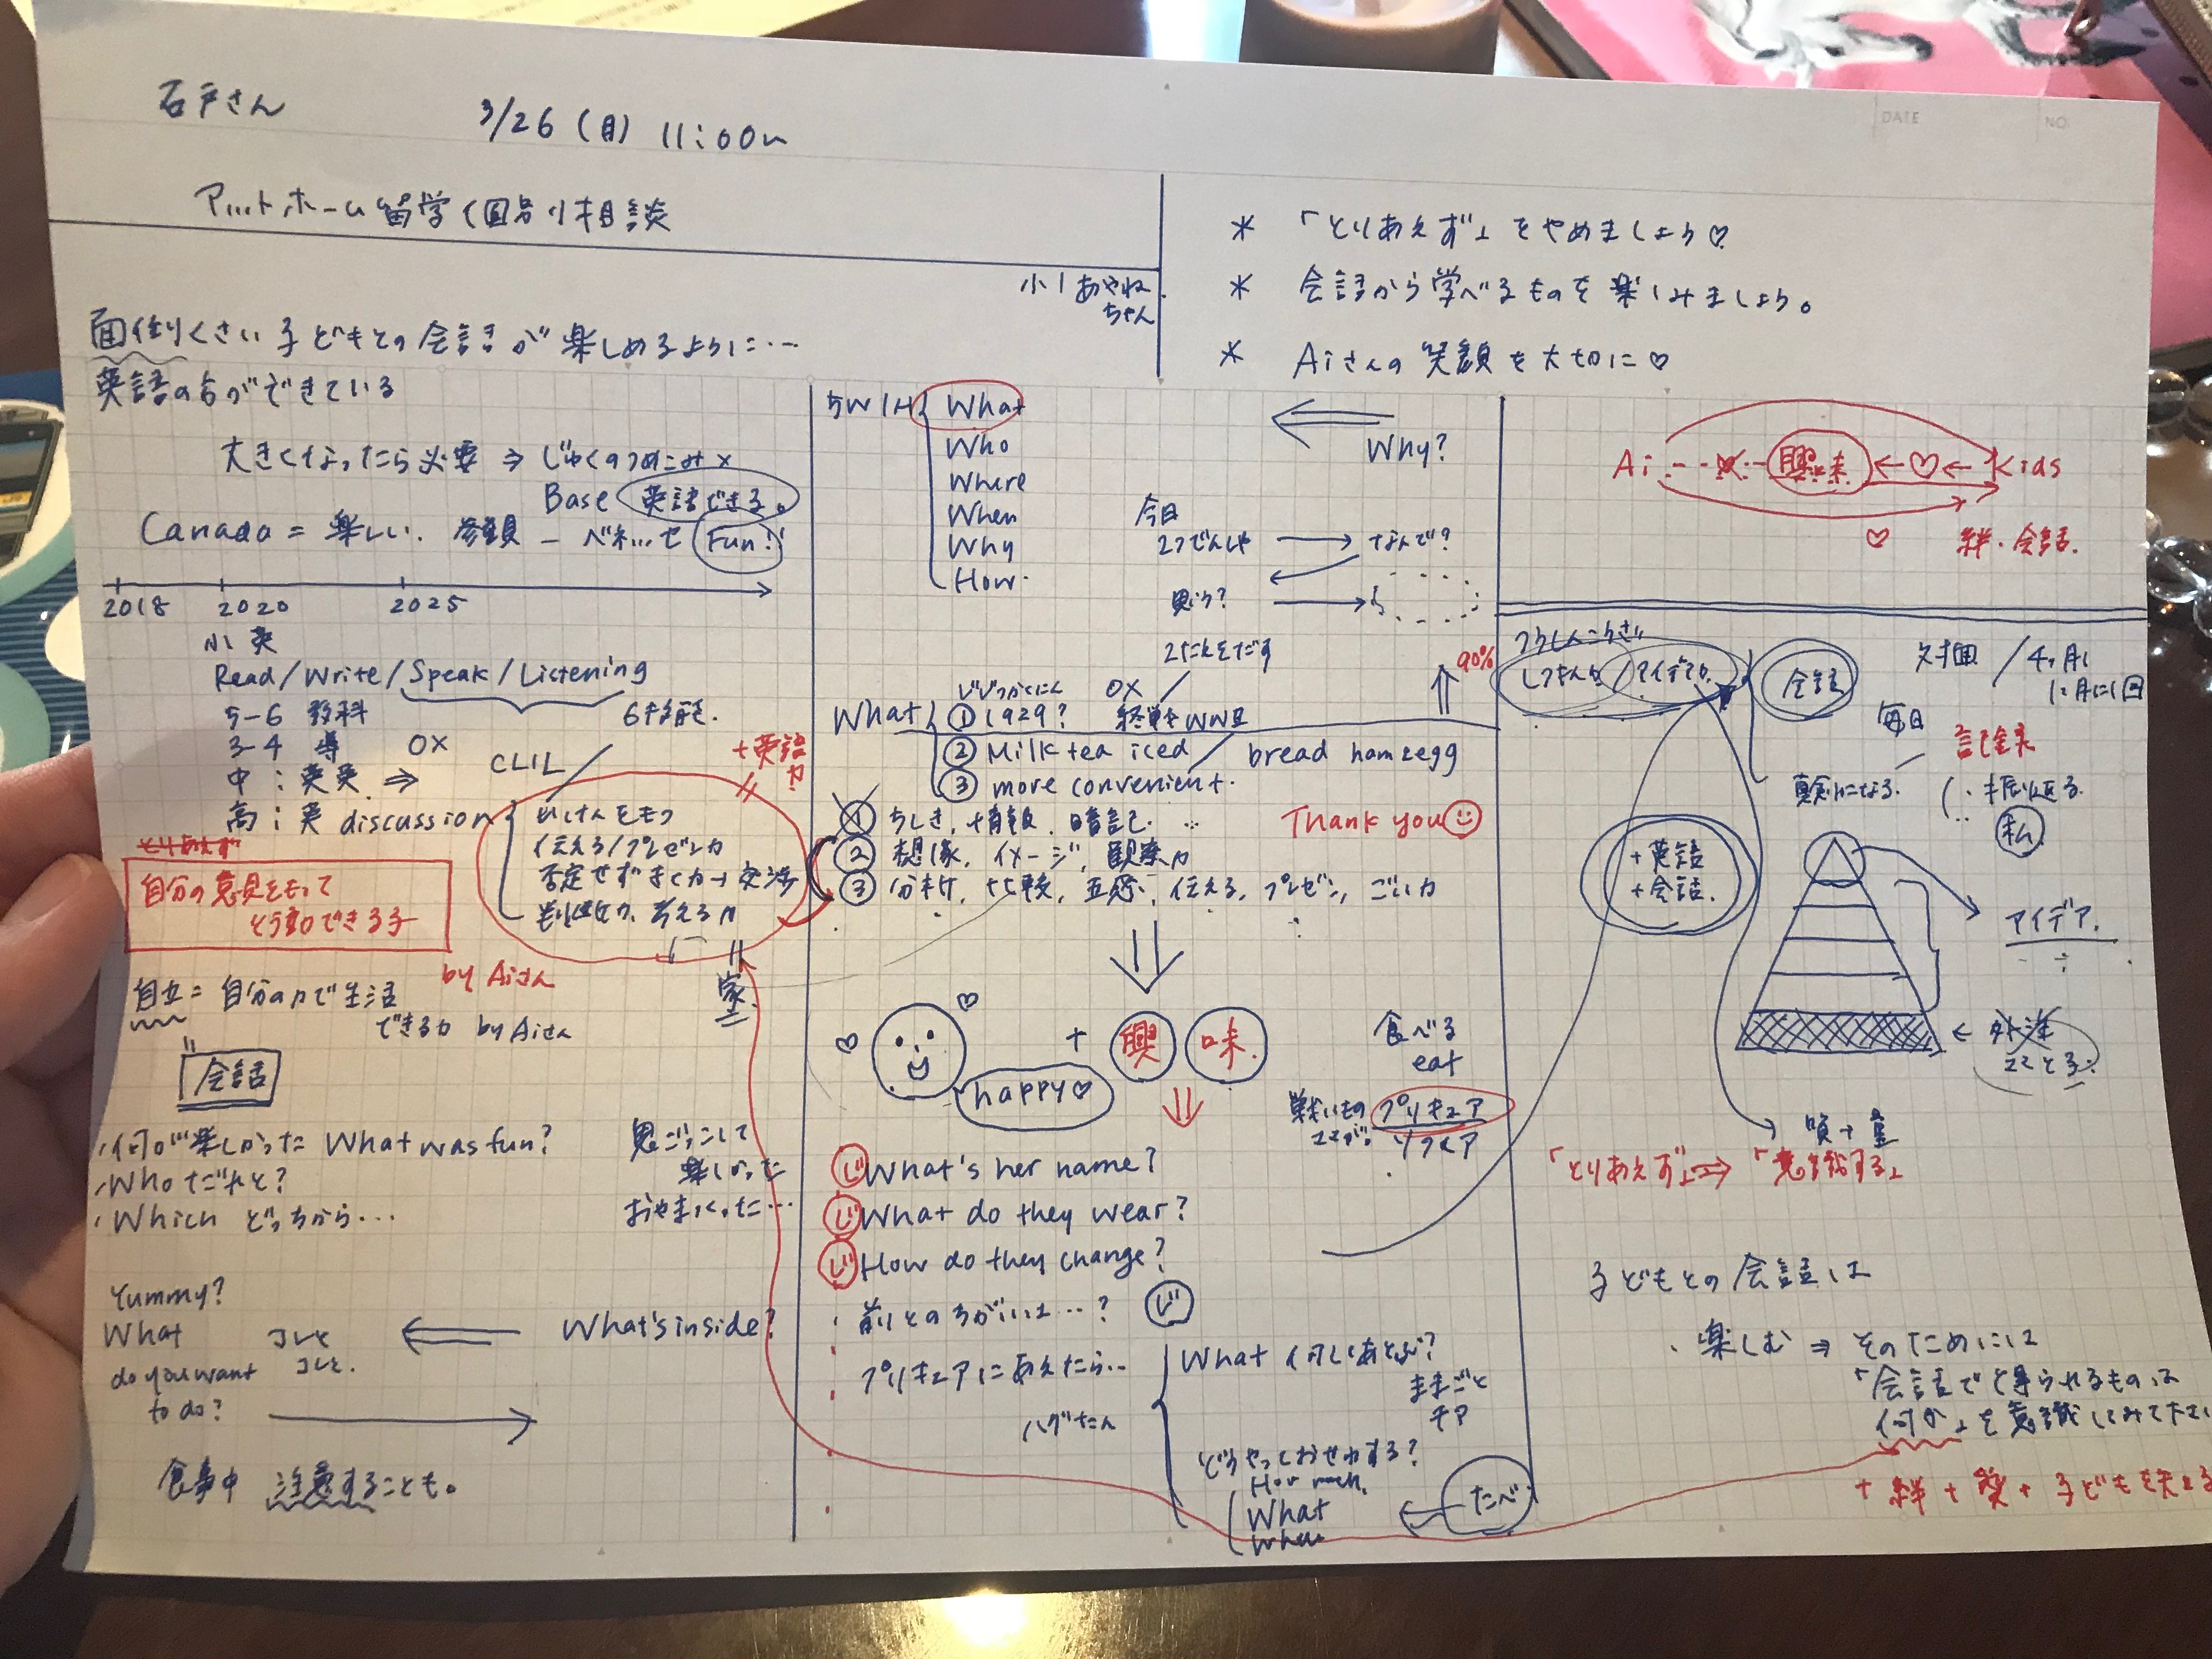 石戸さん
3/26 (日) 11:00~
アットホーム留学 個別相談
小1 あやね
ちゃん
* 「とりあえず」をやめましょう♡
* 会話から学べるものを楽しみましょう。
* Aiさんの笑顔を大切に♡
面倒くさい子どもとの会話が楽しめるように…
英語の方ができている
大きくなったら必要 ⇒ じゅくのつめこみ ×
Base 英語できる。
Canada = 楽しい.
ベネッセ Fun!
2018 2020 2025
小 英
Read/Write/Speak/Listening
5-6 教科
3-4
中:英英 ⇒
OX
CLIL
6才能.
高:英 discussion
いけんをもつ
伝える/プレゼン力
否定せずきく力→交渉
考える力
+英語
力
とりあえず
自分の意見をもって
行動できる子
by Aiさん
家
自立 = 自分の力で生活
できる力 by Aiさん
会話
・何が楽しかった What was fun?
・Who だれと?
・Which どっちから…
鬼ごっこして
楽しかった
おやまつくった…
Yummy?
What コレと
do you want コレと.
to do?
What's inside?
食事中 注意することも。
5W1H
What
Who
Where
When
Why
How.
Why?
今日
なんで?
思う?
90%
What
じじつかくにん
① 1929?
OX
終戦 WWⅡ
② Milk tea iced / bread ham egg
③ more convenient.
① ちしき, 情報, 暗記.
Thank you
② 想像, イメージ, 観察力
③ 分析, 比較, 五感, 伝える, プレゼン, ごい力
happy♡
+ 興 味
食べる
eat
プリキュア
ソフィア
じ What's her name?
じ What do they wear?
じ How do they change?
・前とのちがいは…? じ
プリキュアにあえたら…
ハグたん
What 何してあそぶ?
ままごと
チア
どうやっておせわする?
How much.
What
When
たべ
Ai 興味 ← ♡ ← Kids
♡ 絆・会話.
しつもん力/アイデア力
会話
対面 / 4ヶ月
1ヶ月に1回
毎日
記録
真剣になる.
振り返る
私
+英語
+会話.
アイデア.
質→量
「とりあえず」⇒「意識する」
子どもとの会話は
・楽しむ ⇒ そのためには
「会話で得られるものは
何か」を意識してみて下さい